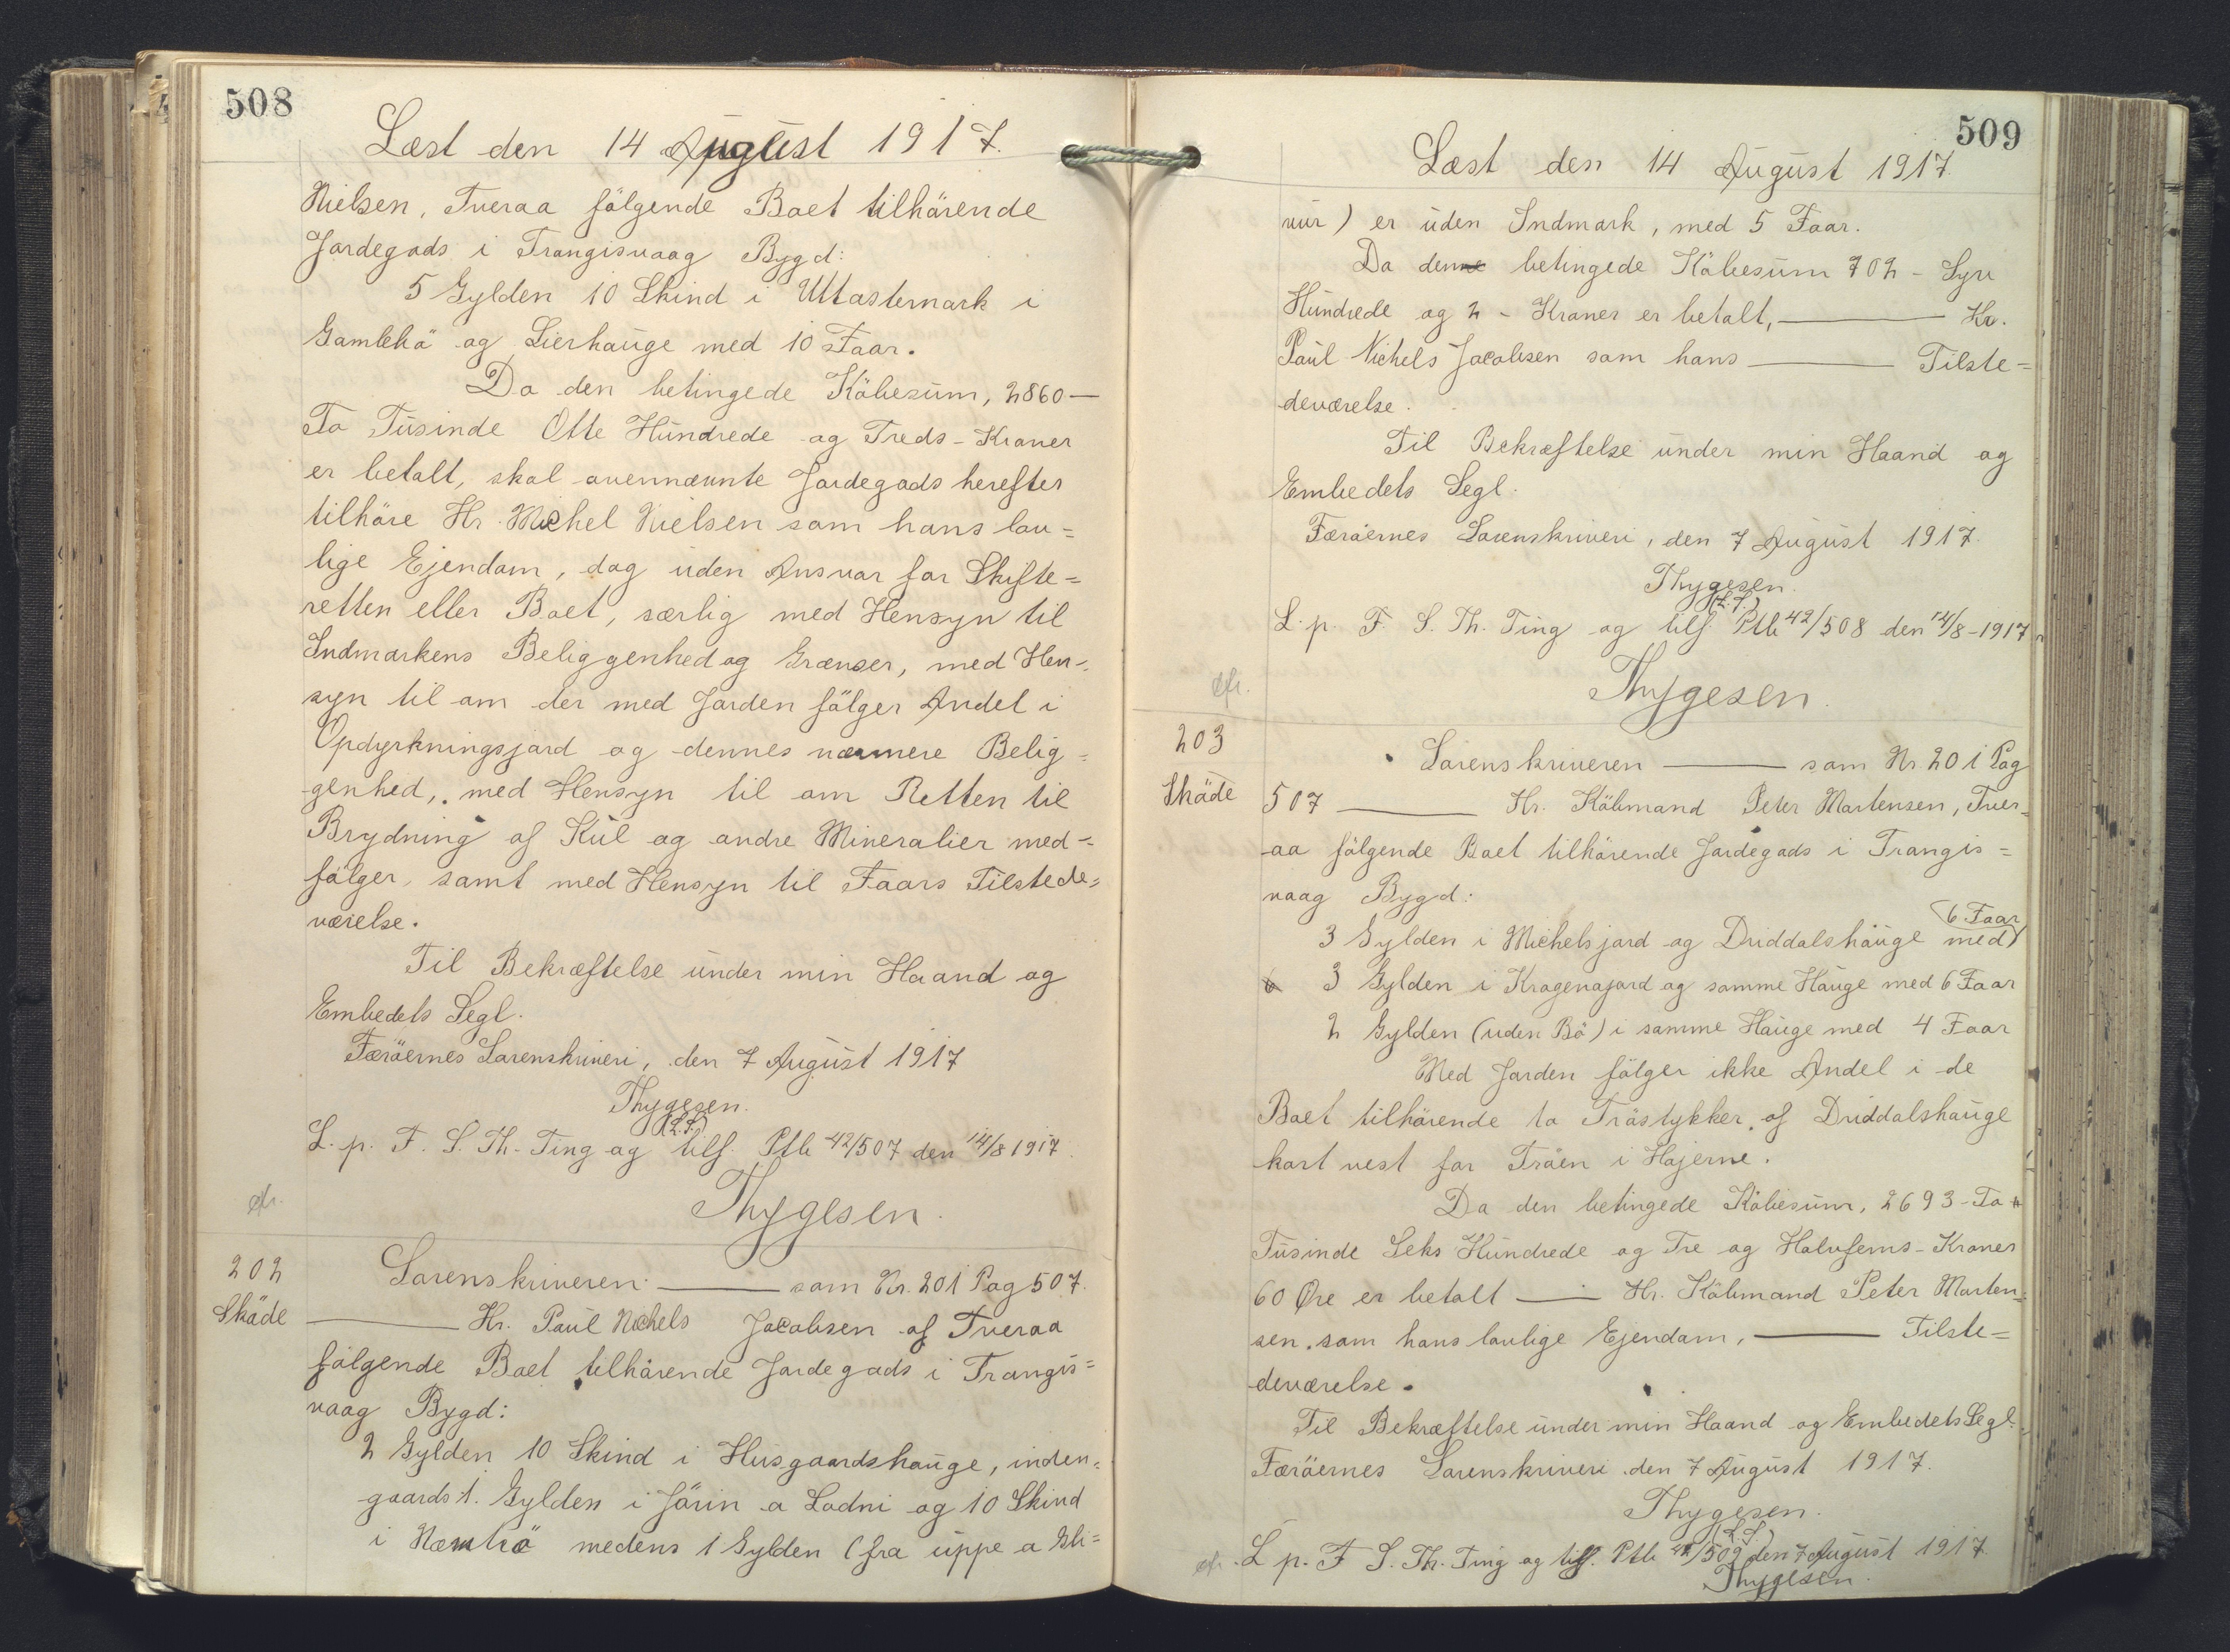 508
Læst den 14 August 1917.
Nielsen, Tveraa følgende Boet tilhørende
Jordegods i Trangisvaag Bygd:
5 Gylden 10 Skind i Uttastemark i
Gamlebö og Lierhauge med 10 Faar.
Da den betingede Köbesum, 2860 —
To Tusinde Otte Hundrede og Treds - Kroner
er betalt, skal ovennævnte Jordegods herefter
tilhöre Hr. Michel Nielsen som hans lov=
lige Ejendom, dog uden Ansvar for Skifte=
retten eller Boet, særlig med Hensyn til
Indmarkens Beliggenhed og Grænser, med Hen-
syn til om der med Jorden fölger Andel i
Opdyrkningsjord og dennes nærmere Belig=
genhed, med Hensyn til om Retten til
Brydning af Kul og andre Mineralier med-
fölger, samt med Hensyn til Faars Tilstede=
værelse.
Til Bekræftelse under min Haand og
Embedets Segl.
Færöernes Sorenskriveri, den 7 August 1917
Thygesen.
(L.S.)
L. p. F. S. Th. Ting og tilf. Ptb 42/507 den 14/8 1917.
Thygesen.
cfr.
202
Sköde
Sorenskriveren — som Nr. 201 Pag 507.
— Hr. Paul Nichels Jacobsen af Tveraa
fölgende Boet tilhörende Jordegods i Trangis=
vaag Bygd:
2 Gylden 10 Skind i Husgaardshauge, inden=
gaards 1. Gylden i Jörin a Lodni og 10 Skind
i medens 1 Gylden (fra uppe a Gli=
509
Læst den 14 August 1917.
vur) er uden Indmark, med 5 Faar.
Da denne betingede Köbesum 702 - Syv
Hundrede og 2 - Kroner er betalt, — Hr.
Paul Nichels Jacobsen som hans — Tilste=
deværelse.
Til Bekræftelse under min Haand og
Embedets Segl.
Færöernes Sorenskriveri, den 7 August 1917.
Thygesen.
(L.S.)
L. p. F. S. Th. Ting og tilf. Ptb 42/508 den 14/8-1917
Thygesen.
cfr.
203
Sköde
Sorenskriveren — som Nr. 201 Pag
507 — Hr. Köbmand Peter Mortensen, Tver=
aa fölgende Boet tilhörende Jordegods i Trangis=
vaag Bygd:
3 Gylden i Michelsjord og Driddalshauge med (6 Faar
3 Gylden i Kragenajord og samme Hauge med 6 Faar
2 Gylden (uden Bö) i samme Hauge med 4 Faar
Med Jorden fölger ikke Andel i de
Boet tilhörende to Tröstykker, af Driddalshauge
kort vest for Tröen i Hojerne.
Da den betingede Köbesum, 2693 - To
Tusinde Seks Hundrede og Tre og Halvfems - Kroner
60 Øre er betalt — Hr. Köbmand Peter Morten=
sen, som hans lovlige Ejendom, — Tilste=
deværelse.
Til Bekræftelse under min Haand og Embedets Segl.
Færöernes Sorenskriveri den 7 August 1917.
Thygesen.
(L.S.)
cfr. L p. F S. Th. Ting og tilf. Ptb 42/509 den 7 August 1917.
Thygesen.